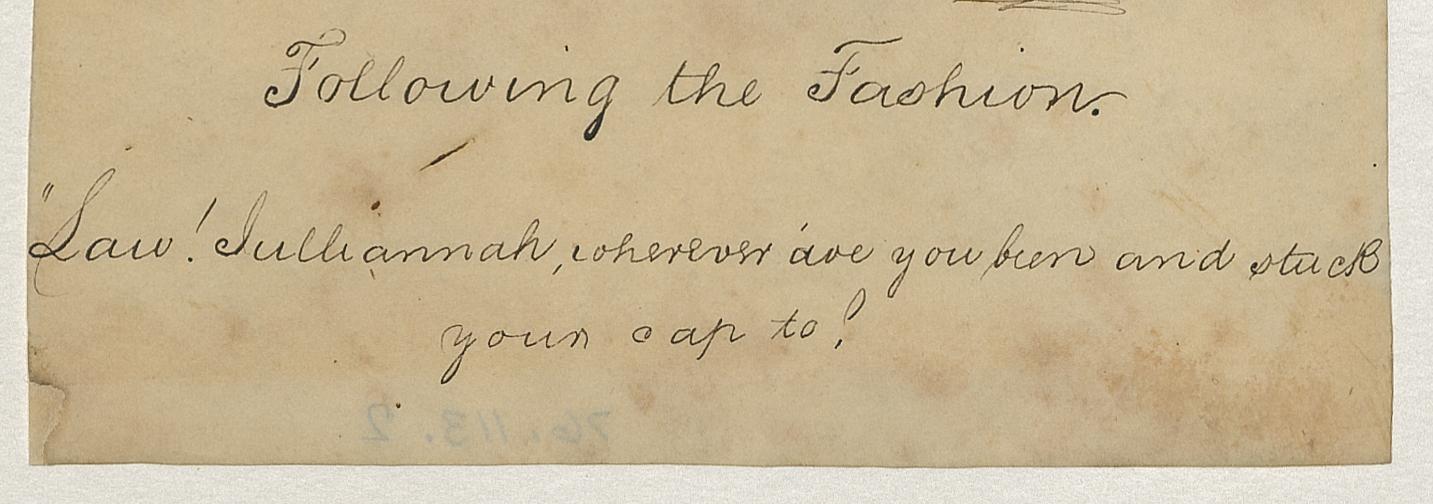 Following the Fashion.
"Law! Julliannah, wherever 'ave you been and stuck
your cap to!
76.113.2